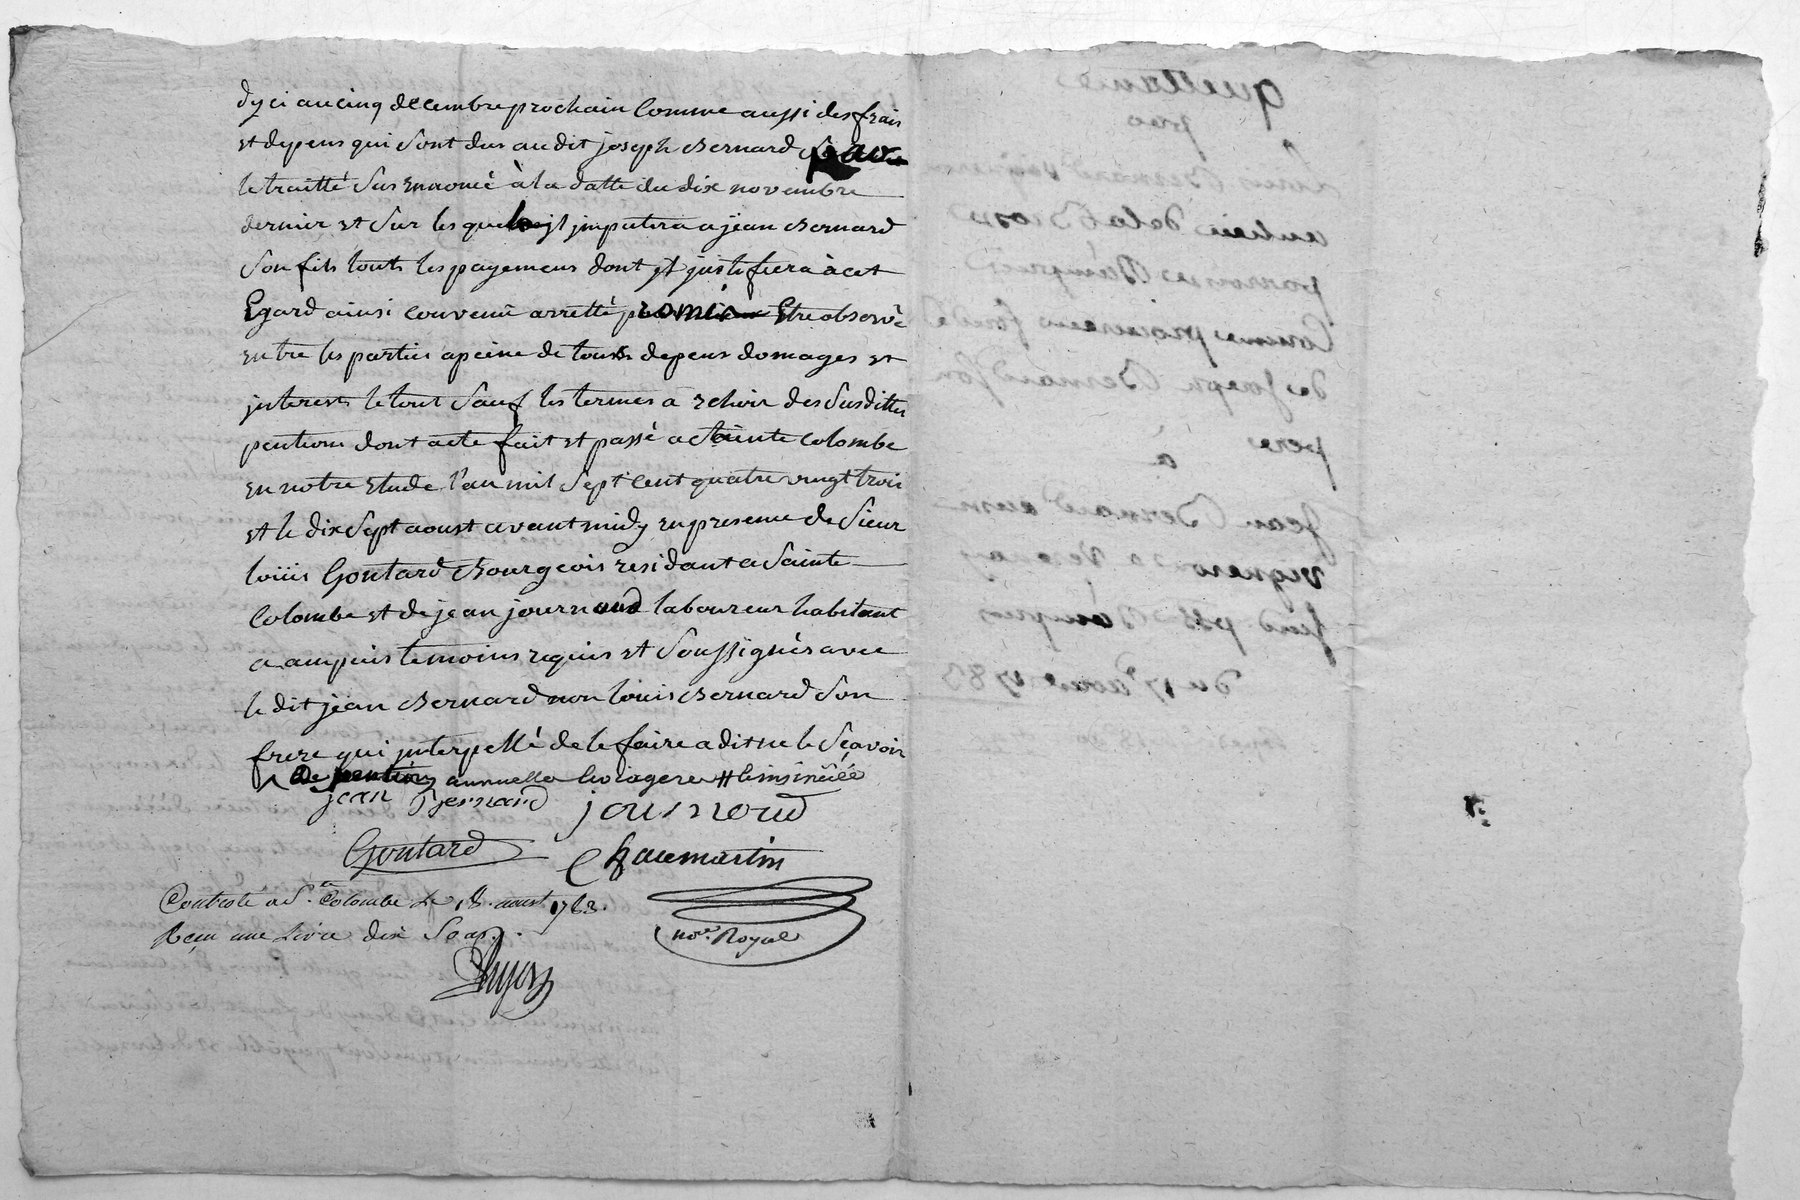 dyci au cinq decembre prochain comme aussi des frais
et depens qui sont dus audit joseph Bernard
le traitté sus enoncé à la datte du dix novembre
dernier et sur les quels jl jmputera a jean Bernard
son fils touts les payemens dont jl justifiera à cet
Egard ainsi convenû arretté promis Etre observé
entre les parties a peine de touts depens domages et
jnterests le tout sauf les termes a echoir des susdittes
pentions dont acte fait et passé a Sainte colombe
en notre Etude l'an mil sept cent quatre vingt trois
et le dix sept aoust avant midy en presence de sieur
loüis Goutard Bourgeois residant a Sainte
Colombe et de jean journoud laboureur habitant
a ampuis temoins requis et soussignés avec
le dit jean Bernard non louis Bernard son
frere qui jnterpellé de le faire a dit ne le sçavoir
de pention annuelle &
jean Bernard journoud
Goutard Chaumartin
Controlé a Ste Colombe le 18 aoust 1783.
Reçu une Livre dix Sols.
nore. Royal
quittance
par
Louis Bernard vigneron
de joseph Bernard son
pere
à
jean Bernard aussi
vigneron a
du 17e aoust 1783